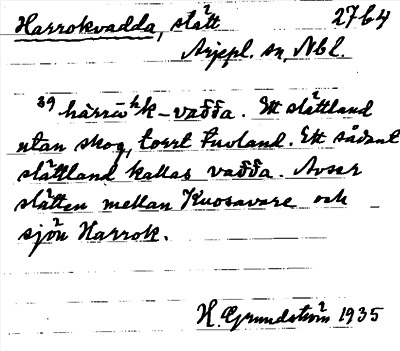 Harrokvadda, slätt 27b4
Arjepl. sn, Nbl.
39 härrŭʰk-vaδδa. Ett slättland
utan skog, torrt tuvland. Ett sådant
slättland kallas vaδδa. Avser
slätten mellan Kuosavare och
sjön Harrok.
H. Grundström 1935